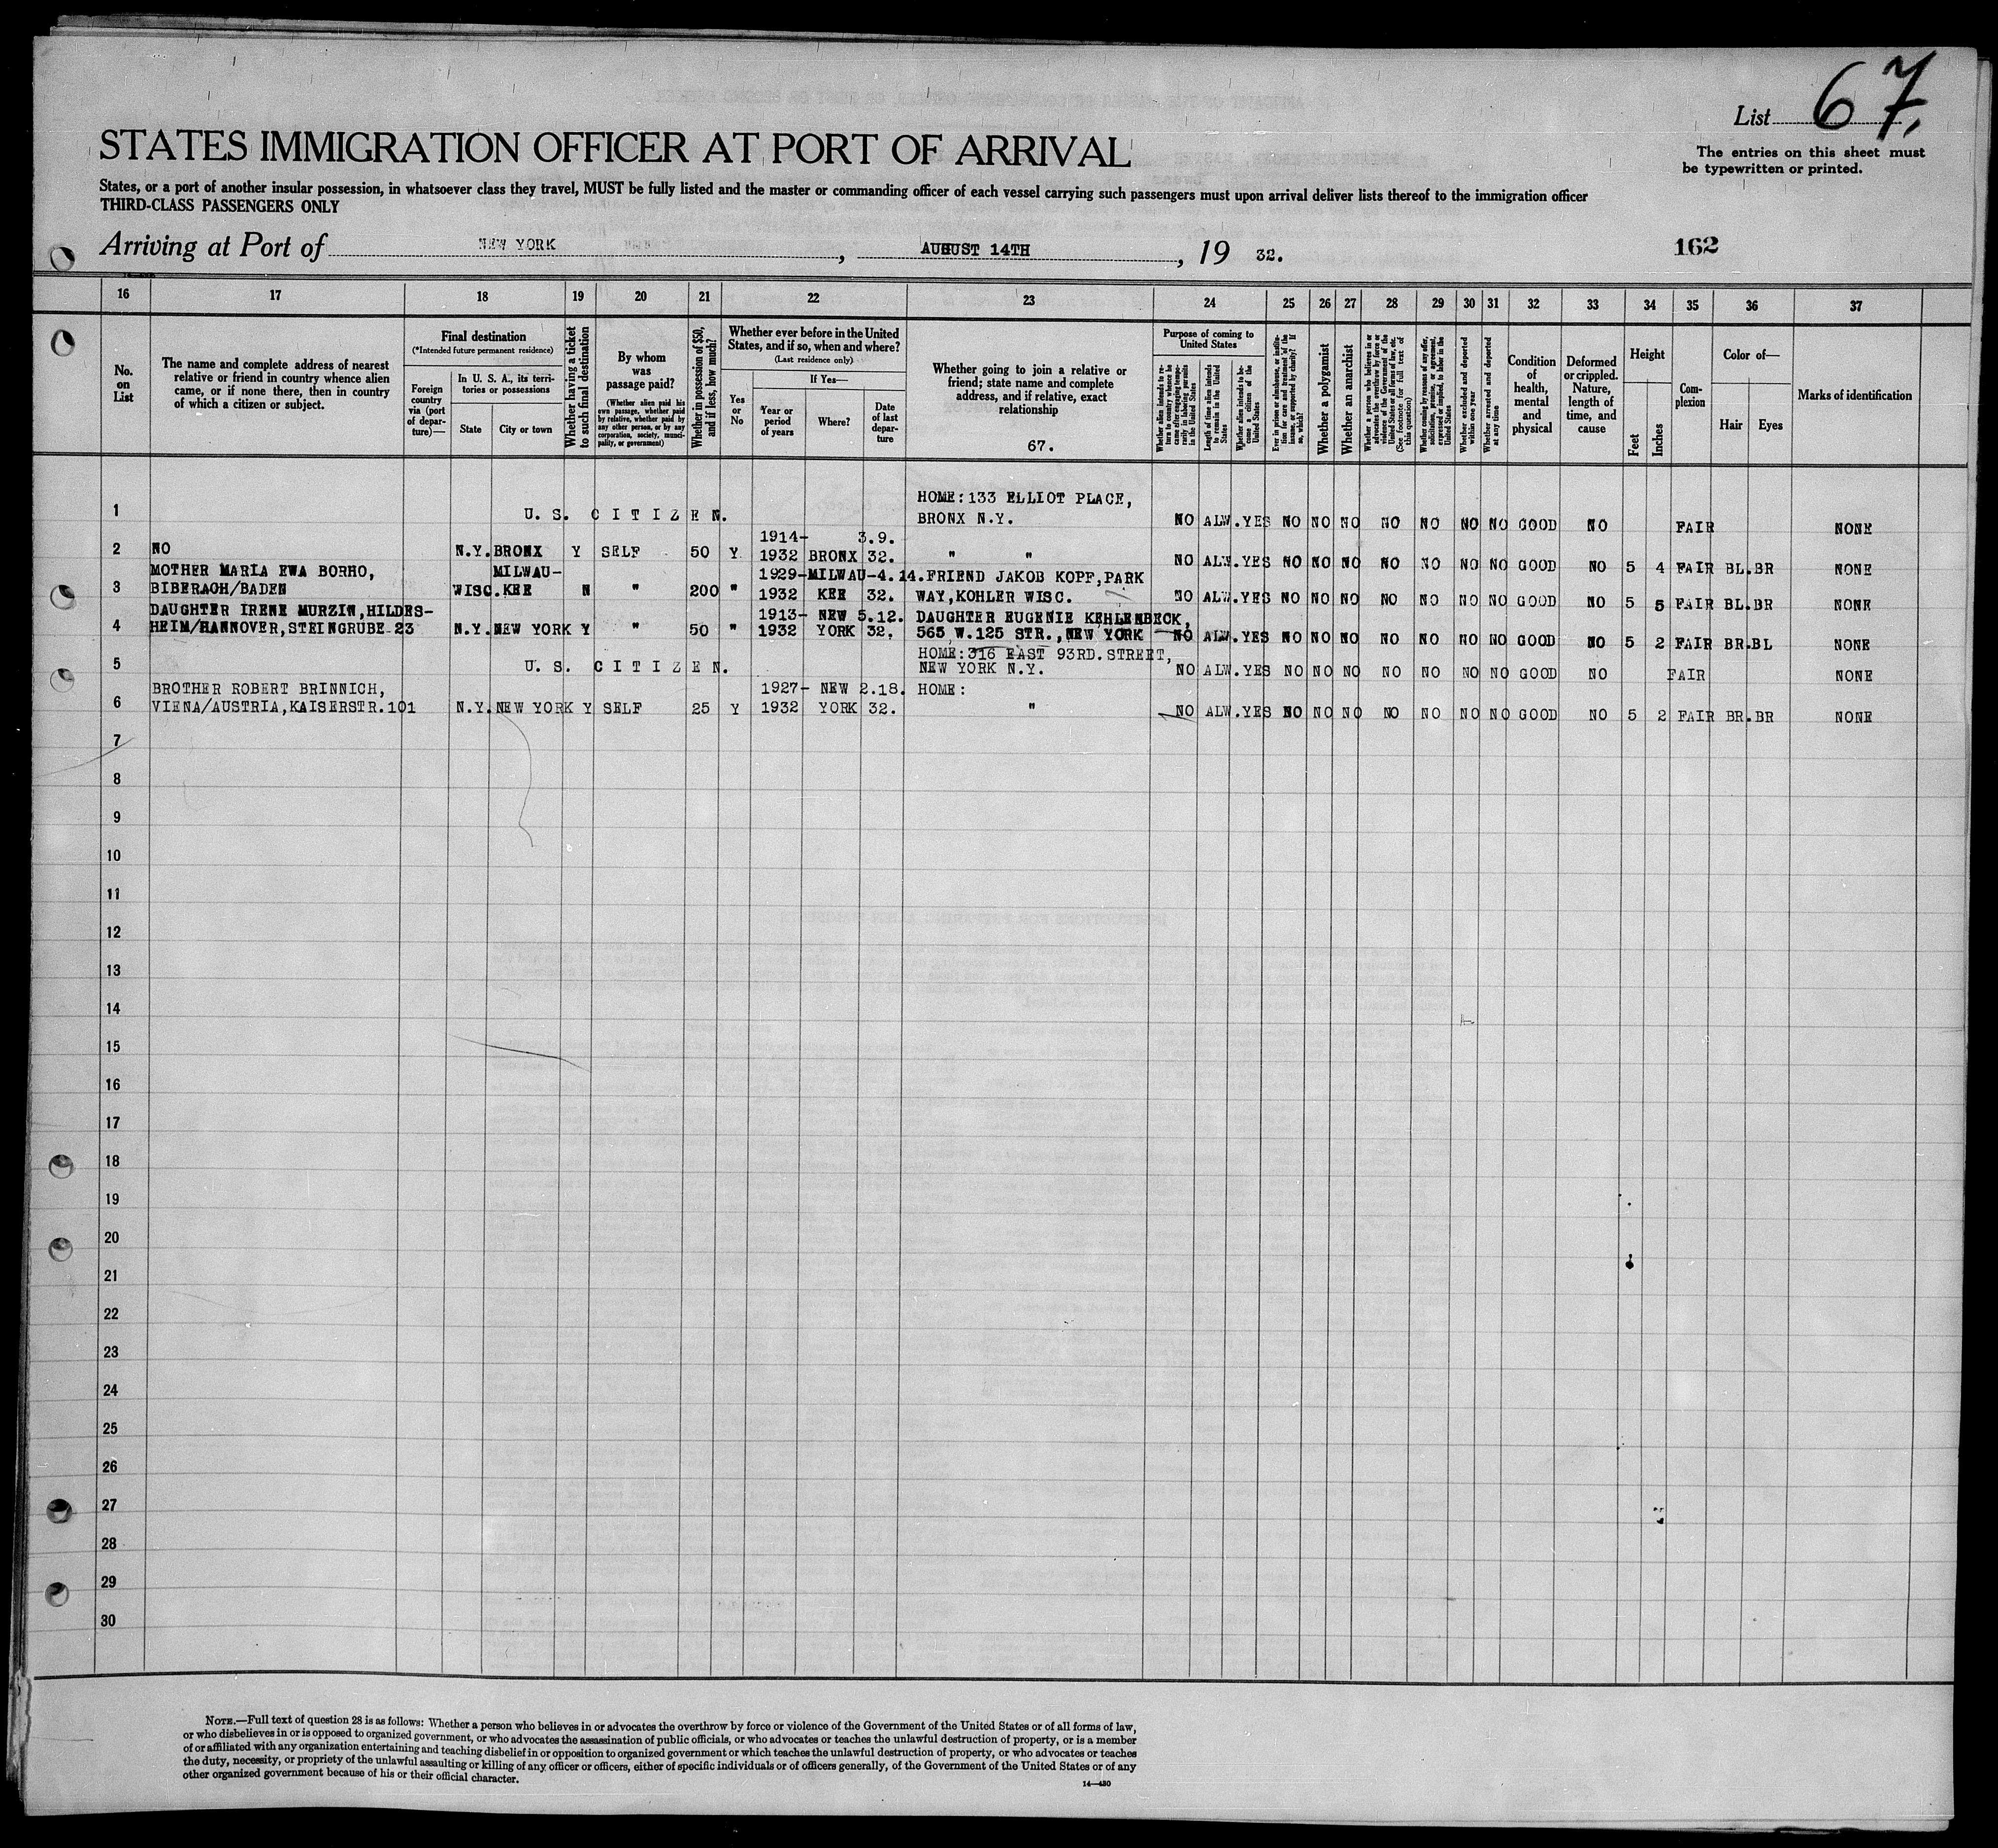 List 67.
The entries on this sheet must
be typewritten or printed.
STATES IMMIGRATION OFFICER AT PORT OF ARRIVAL
States, or a port of another insular possession, in whatsoever class they travel, MUST be fully listed and the master or commanding officer of each vessel carrying such passengers must upon arrival deliver lists thereof to the immigration officer
THIRD-CLASS PASSENGERS ONLY
Arriving at Port of NEW YORK, AUGUST 14TH, 19 32. 162
16 17 18 19 20 21 22 23 24 25 26 27 28 29 30 31 32 33 34 35 36 37
No. on List
The name and complete address of nearest
relative or friend in country whence alien
came, or if none there, then in country
of which a citizen or subject.
Final destination
(*Intended future permanent residence)
Foreign country via (port of departure)—
In U. S. A., its territories or possessions
State City or town
Whether having a ticket to such final destination
By whom was passage paid?
(Whether alien paid his own passage, whether paid by relative, whether paid by any other person, or by any corporation, society, municipality, or government)
Whether in possession of $50, and if less, how much?
Whether ever before in the United States, and if so, when and where?
(Last residence only)
Yes or No
If Yes—
Year or period of years
Where?
Date of last departure
Whether going to join a relative or
friend; state name and complete
address, and if relative, exact
relationship
67.
Purpose of coming to United States
Length of time alien intends to remain in the United States
Whether alien intends to become a citizen of the United States
Whether a polygamist
Whether an anarchist
Whether excluded and deported within one year
Whether arrested and deported at any time
Condition of health, mental and physical
Deformed or crippled. Nature, length of time, and cause
Height
Feet Inches
Complexion
Color of—
Hair Eyes
Marks of identification
HOME:133 ELLIOT PLACE,
1 U. S. CITIZEN. BRONX N.Y. NO ALW. YES NO NO NO NO NO NO NO GOOD NO FAIR NONE
1914- 3.9.
2 NO N.Y. BRONX Y SELF 50 Y 1932 BRONX 32. " " NO ALW. YES NO NO NO NO NO NO NO GOOD NO 5 4 FAIR BL. BR NONE
MOTHER MARIA EWA BORHO, MILWAU- 1929-MILWAU-4.14. FRIEND JAKOB KOPF, PARK
3 BIBERACH/BADEN WISC. KEE N " 200 " 1932 KEE 32. WAY, KOHLER WISC. NO ALW. YES NO NO NO NO NO NO NO GOOD NO 5 5 FAIR BL. BR NONE
DAUGHTER IRENE MURZIN, HILDES- 1913- NEW 5.12. DAUGHTER EUGENIE KEHLENBECK,
4 HEIM/HANNOVER, STEINGRUBE 23 N.Y. NEW YORK Y " 50 " 1932 YORK 32. 565 W.125 STR., NEW YORK NO ALW. YES NO NO NO NO NO NO NO GOOD NO 5 2 FAIR BR. BL NONE
HOME:316 EAST 93RD. STREET,
5 U. S. CITIZEN. NEW YORK N.Y. NO ALW. YES NO NO NO NO NO NO NO GOOD NO FAIR NONE
BROTHER ROBERT BRINNICH, 1927- NEW 2.18. HOME:
6 VIENA/AUSTRIA, KAISERSTR.101 N.Y. NEW YORK Y SELF 25 Y 1932 YORK 32. " NO ALW. YES NO NO NO NO NO NO NO GOOD NO 5 2 FAIR BR. BR NONE
7
8
9
10
11
12
13
14
15
16
17
18
19
20
21
22
23
24
25
26
27
28
29
30
NOTE.—Full text of question 28 is as follows: Whether a person who believes in or advocates the overthrow by force or violence of the Government of the United States or of all forms of law,
or who disbelieves in or is opposed to organized government, or who advocates the assassination of public officials, or who advocates or teaches the unlawful destruction of property, or is a member
of or affiliated with any organization entertaining and teaching disbelief in or opposition to organized government or which teaches the unlawful destruction of property, or who advocates or teaches
the duty, necessity, or propriety of the unlawful assaulting or killing of any officer or officers, either of specific individuals or of officers generally, of the Government of the United States or of any
other organized government because of his or their official character.
14—480